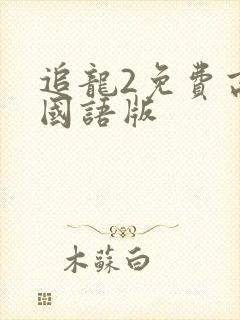 追龍2免費
國語版
木蘇白